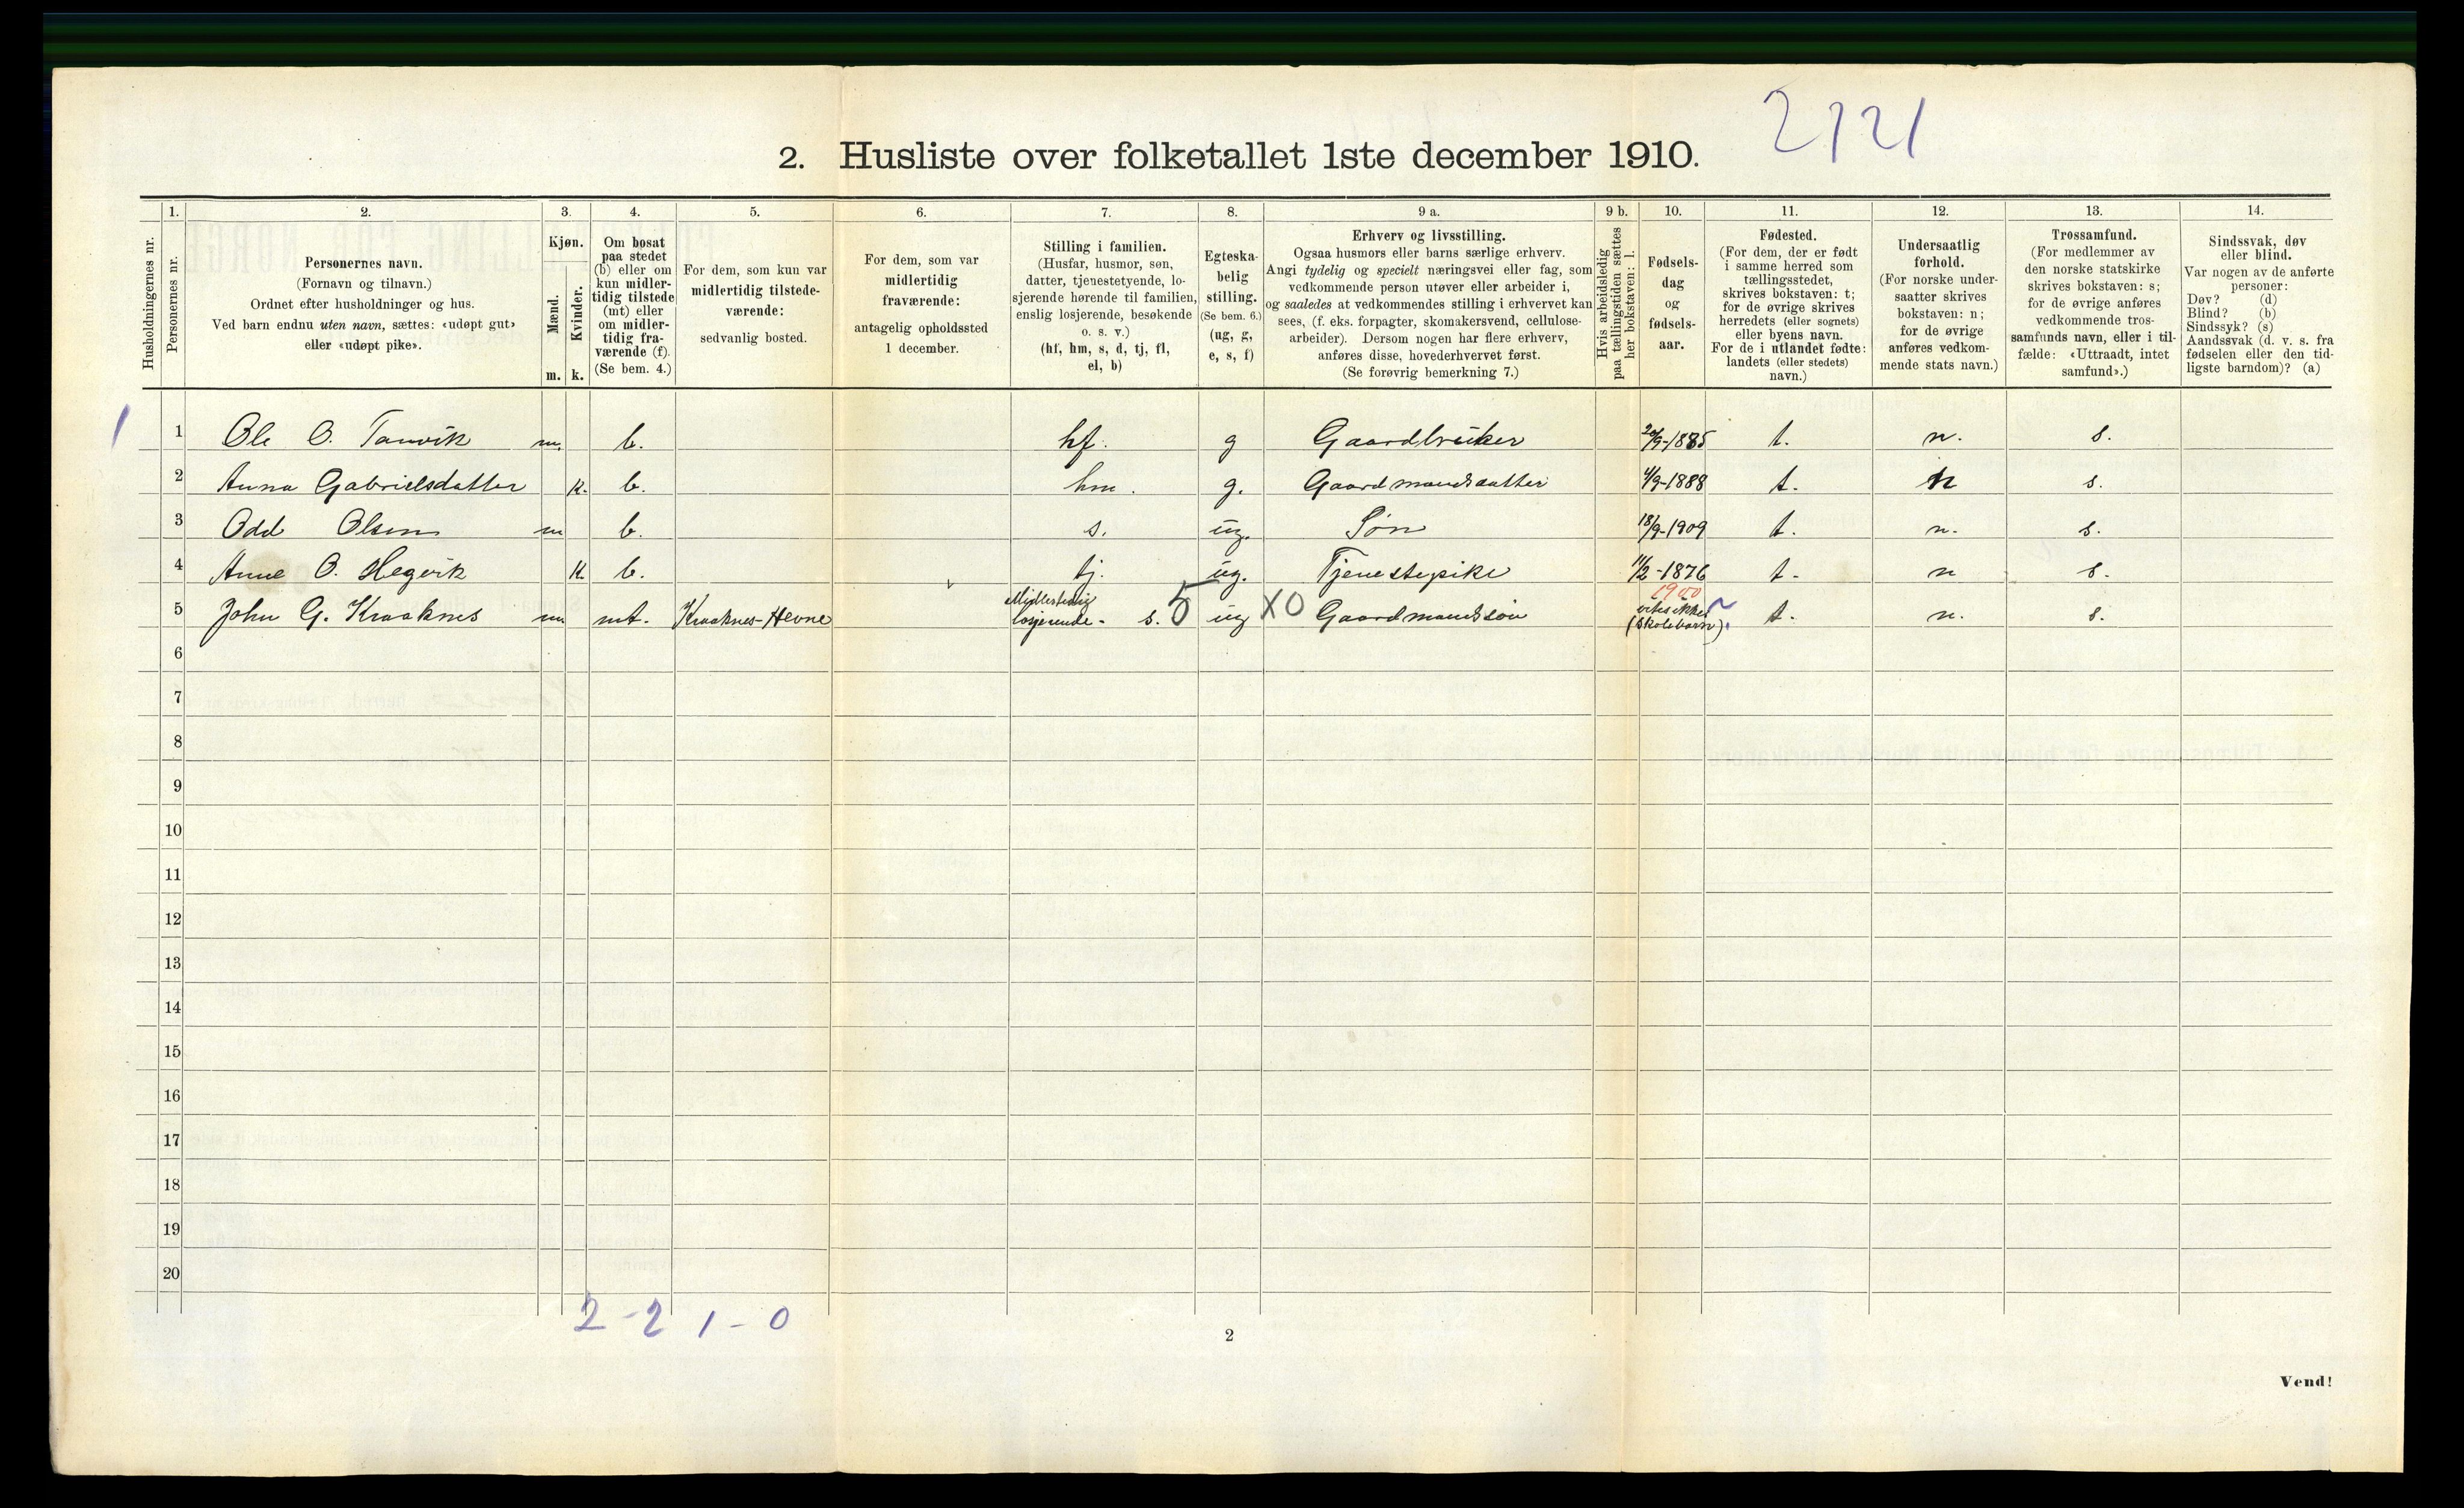 2121
2. Husliste over folketallet 1ste december 1910.
Husholdningernes nr.
1. Personernes nr.
2. Personernes navn.
(Fornavn og tilnavn.)
Ordnet efter husholdninger og hus.
Ved barn endnu uten navn, sættes: «udøpt gut»
eller «udøpt pike».
3. Kjøn.
Mænd. m.
Kvinder. k.
4. Om bosat
paa stedet
(b) eller om
kun midler-
tidig tilstede
(mt) eller
om midler-
tidig fra-
værende (f).
(Se bem. 4.)
5. For dem, som kun var
midlertidig tilstede-
værende:
sedvanlig bosted.
6. For dem, som var
midlertidig
fraværende:
antagelig opholdssted
1 december.
7. Stilling i familien.
(Husfar, husmor, søn,
datter, tjenestetyende, lo-
sjerende hørende til familien,
enslig losjerende, besøkende
o. s. v.)
(hf, hm, s, d, tj, fl,
el, b)
8. Egteska-
belig
stilling.
(Se bem. 6.)
(ug, g,
e, s, f)
9 a. Erhverv og livsstilling.
Ogsaa husmors eller barns særlige erhverv.
Angi tydelig og specielt næringsvei eller fag, som
vedkommende person utøver eller arbeider i,
og saaledes at vedkommendes stilling i erhvervet kan
sees, (f. eks. forpagter, skomakersvend, cellulose-
arbeider). Dersom nogen har flere erhverv,
anføres disse, hovederhvervet først.
(Se forøvrig bemerkning 7.)
9 b. Hvis arbeidsledig
paa tællingstiden sættes
her bokstaven: l.
10. Fødsels-
dag
og
fødsels-
aar.
11. Fødested.
(For dem, der er født
i samme herred som
tællingsstedet,
skrives bokstaven: t;
for de øvrige skrives
herredets (eller sognets)
eller byens navn.
For de i utlandet fødte:
landets (eller stedets)
navn.)
12. Undersaatlig
forhold.
(For norske under-
saatter skrives
bokstaven: n;
for de øvrige
anføres vedkom-
mende stats navn.)
13. Trossamfund.
(For medlemmer av
den norske statskirke
skrives bokstaven: s;
for de øvrige anføres
vedkommende tros-
samfunds navn, eller i til-
fælde: «Uttraadt, intet
samfund».)
14. Sindssvak, døv
eller blind.
Var nogen av de anførte
personer:
Døv? (d)
Blind? (b)
Sindssyk? (s)
Aandssvak (d. v. s. fra
fødselen eller den tid-
ligste barndom)? (a)
1 1 Ole O. Tanvik m. b. hf. g Gaardbruker 20/9-1885 t. n. s.
2 Anna Gabrielsdatter k. b. hm. g. Gaardmandsdatter 4/9-1888 t. n s.
3 Odd Olsen m b. s. ug. Søn 18/9-1909 t. n. s.
4 Anne O. Hegvik k. b. tj. ug. Tjenestepike 11/2-1876 t. n s.
5 John G. Kraaknes m mt. Kraaknes-Hevne Midlertidig losjerende - s. 5 ug XO Gaardmandssøn 1900 vites ikke (Skolebarn). t. n. s.
6
7
8
9
10
11
12
13
14
15
16
17
18
19
20
2-2 1-0
2
Vend!